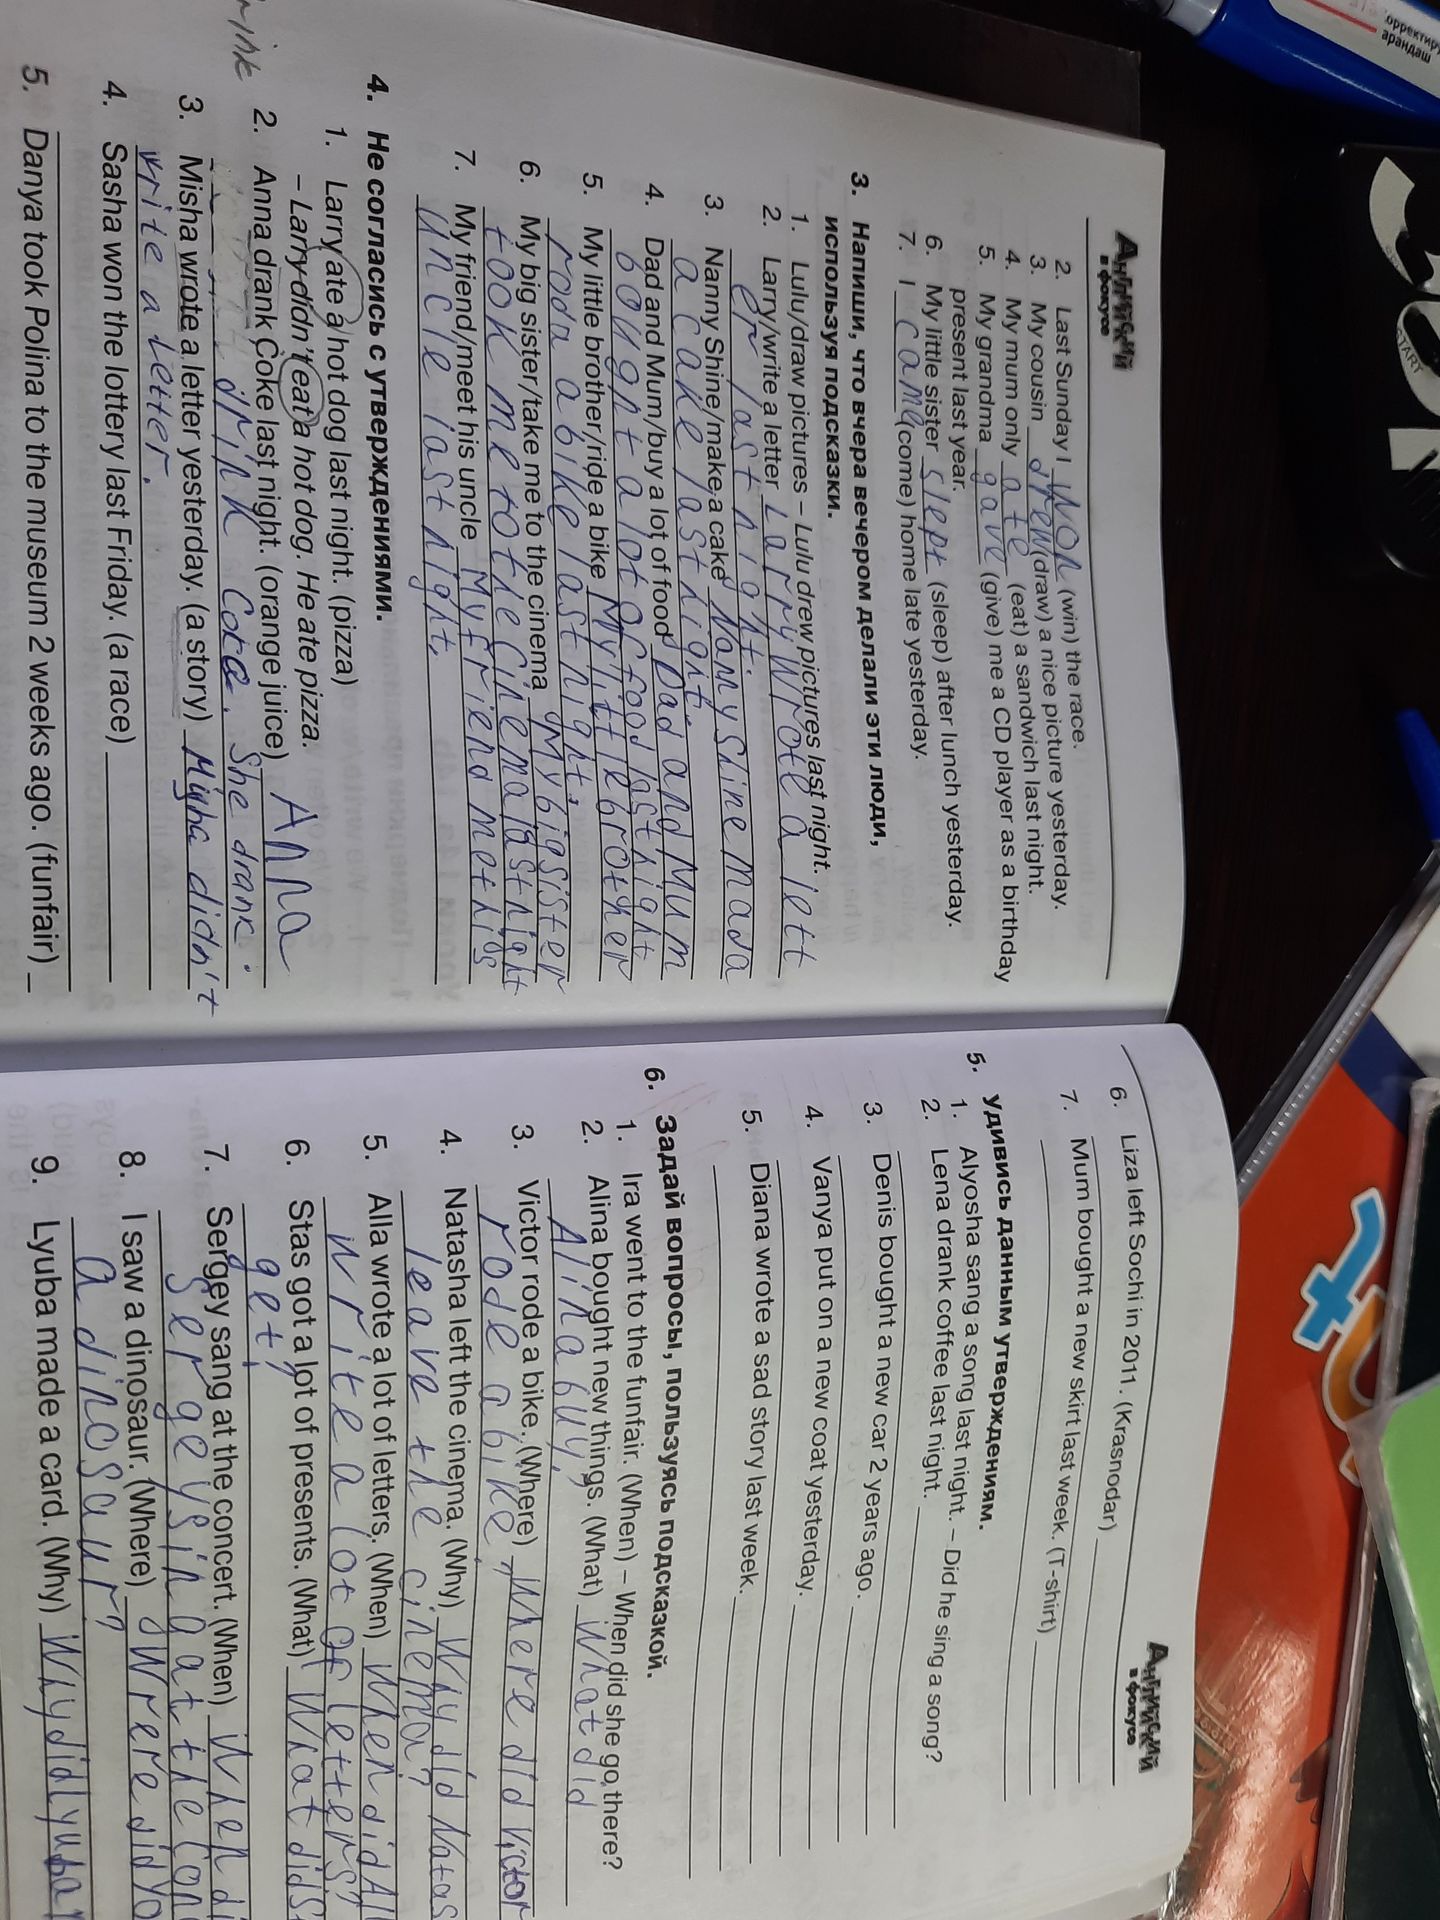 Английский
в фокусе
2. Last Sunday I won (win) the race.
3. My cousin drew (draw) a nice picture yesterday.
4. My mum only ate (eat) a sandwich last night.
5. My grandma gave (give) me a CD player as a birthday
present last year.
6. My little sister slept (sleep) after lunch yesterday.
7. I came (come) home late yesterday.
3. Напиши, что вчера вечером делали эти люди,
используя подсказки.
1. Lulu/draw pictures – Lulu drew pictures last night.
2. Larry/write a letter Larry wrote a lett
er last night.
3. Nanny Shine/make a cake Nanny Shine mada
a cake last night.
4. Dad and Mum/buy a lot of food Dad and Mum
bought a lot of food last night
5. My little brother/ride a bike My little brother
roda a bike last night.
6. My big sister/take me to the cinema My big sister
took me to the cinema last night
7. My friend/meet his uncle My friend met his
uncle last night.
4. Не согласись с утверждениями.
1. Larry ate a hot dog last night. (pizza)
– Larry didn't eat a hot dog. He ate pizza.
2. Anna drank Coke last night. (orange juice) Anna
drink Coca. She drank
3. Misha wrote a letter yesterday. (a story) Misha didn't
write a letter.
4. Sasha won the lottery last Friday. (a race)
5. Danya took Polina to the museum 2 weeks ago. (funfair)
Английский
в фокусе
6. Liza left Sochi in 2011. (Krasnodar)
7. Mum bought a new skirt last week. (T-shirt)
5. Удивись данным утверждениям.
1. Alyosha sang a song last night. – Did he sing a song?
2. Lena drank coffee last night.
3. Denis bought a new car 2 years ago.
4. Vanya put on a new coat yesterday.
5. Diana wrote a sad story last week.
6. Задай вопросы, пользуясь подсказкой.
1. Ira went to the funfair. (When) – When did she go there?
2. Alina bought new things. (What) What did
Alina buy?
3. Victor rode a bike. (Where) Where did Victor
rode a bike?
4. Natasha left the cinema. (Why) Why did Natas
leave the cinema?
5. Alla wrote a lot of letters. (When) When did All
write a lot of letters?
6. Stas got a lot of presents. (What) What did S
get?
7. Sergey sang at the concert. (When) When di
Sergey sing at the con
8. I saw a dinosaur. (Where) Where did yo
a dinosaur?
9. Lyuba made a card. (Why) Why did Lyuba
START
орректиру
арандаш